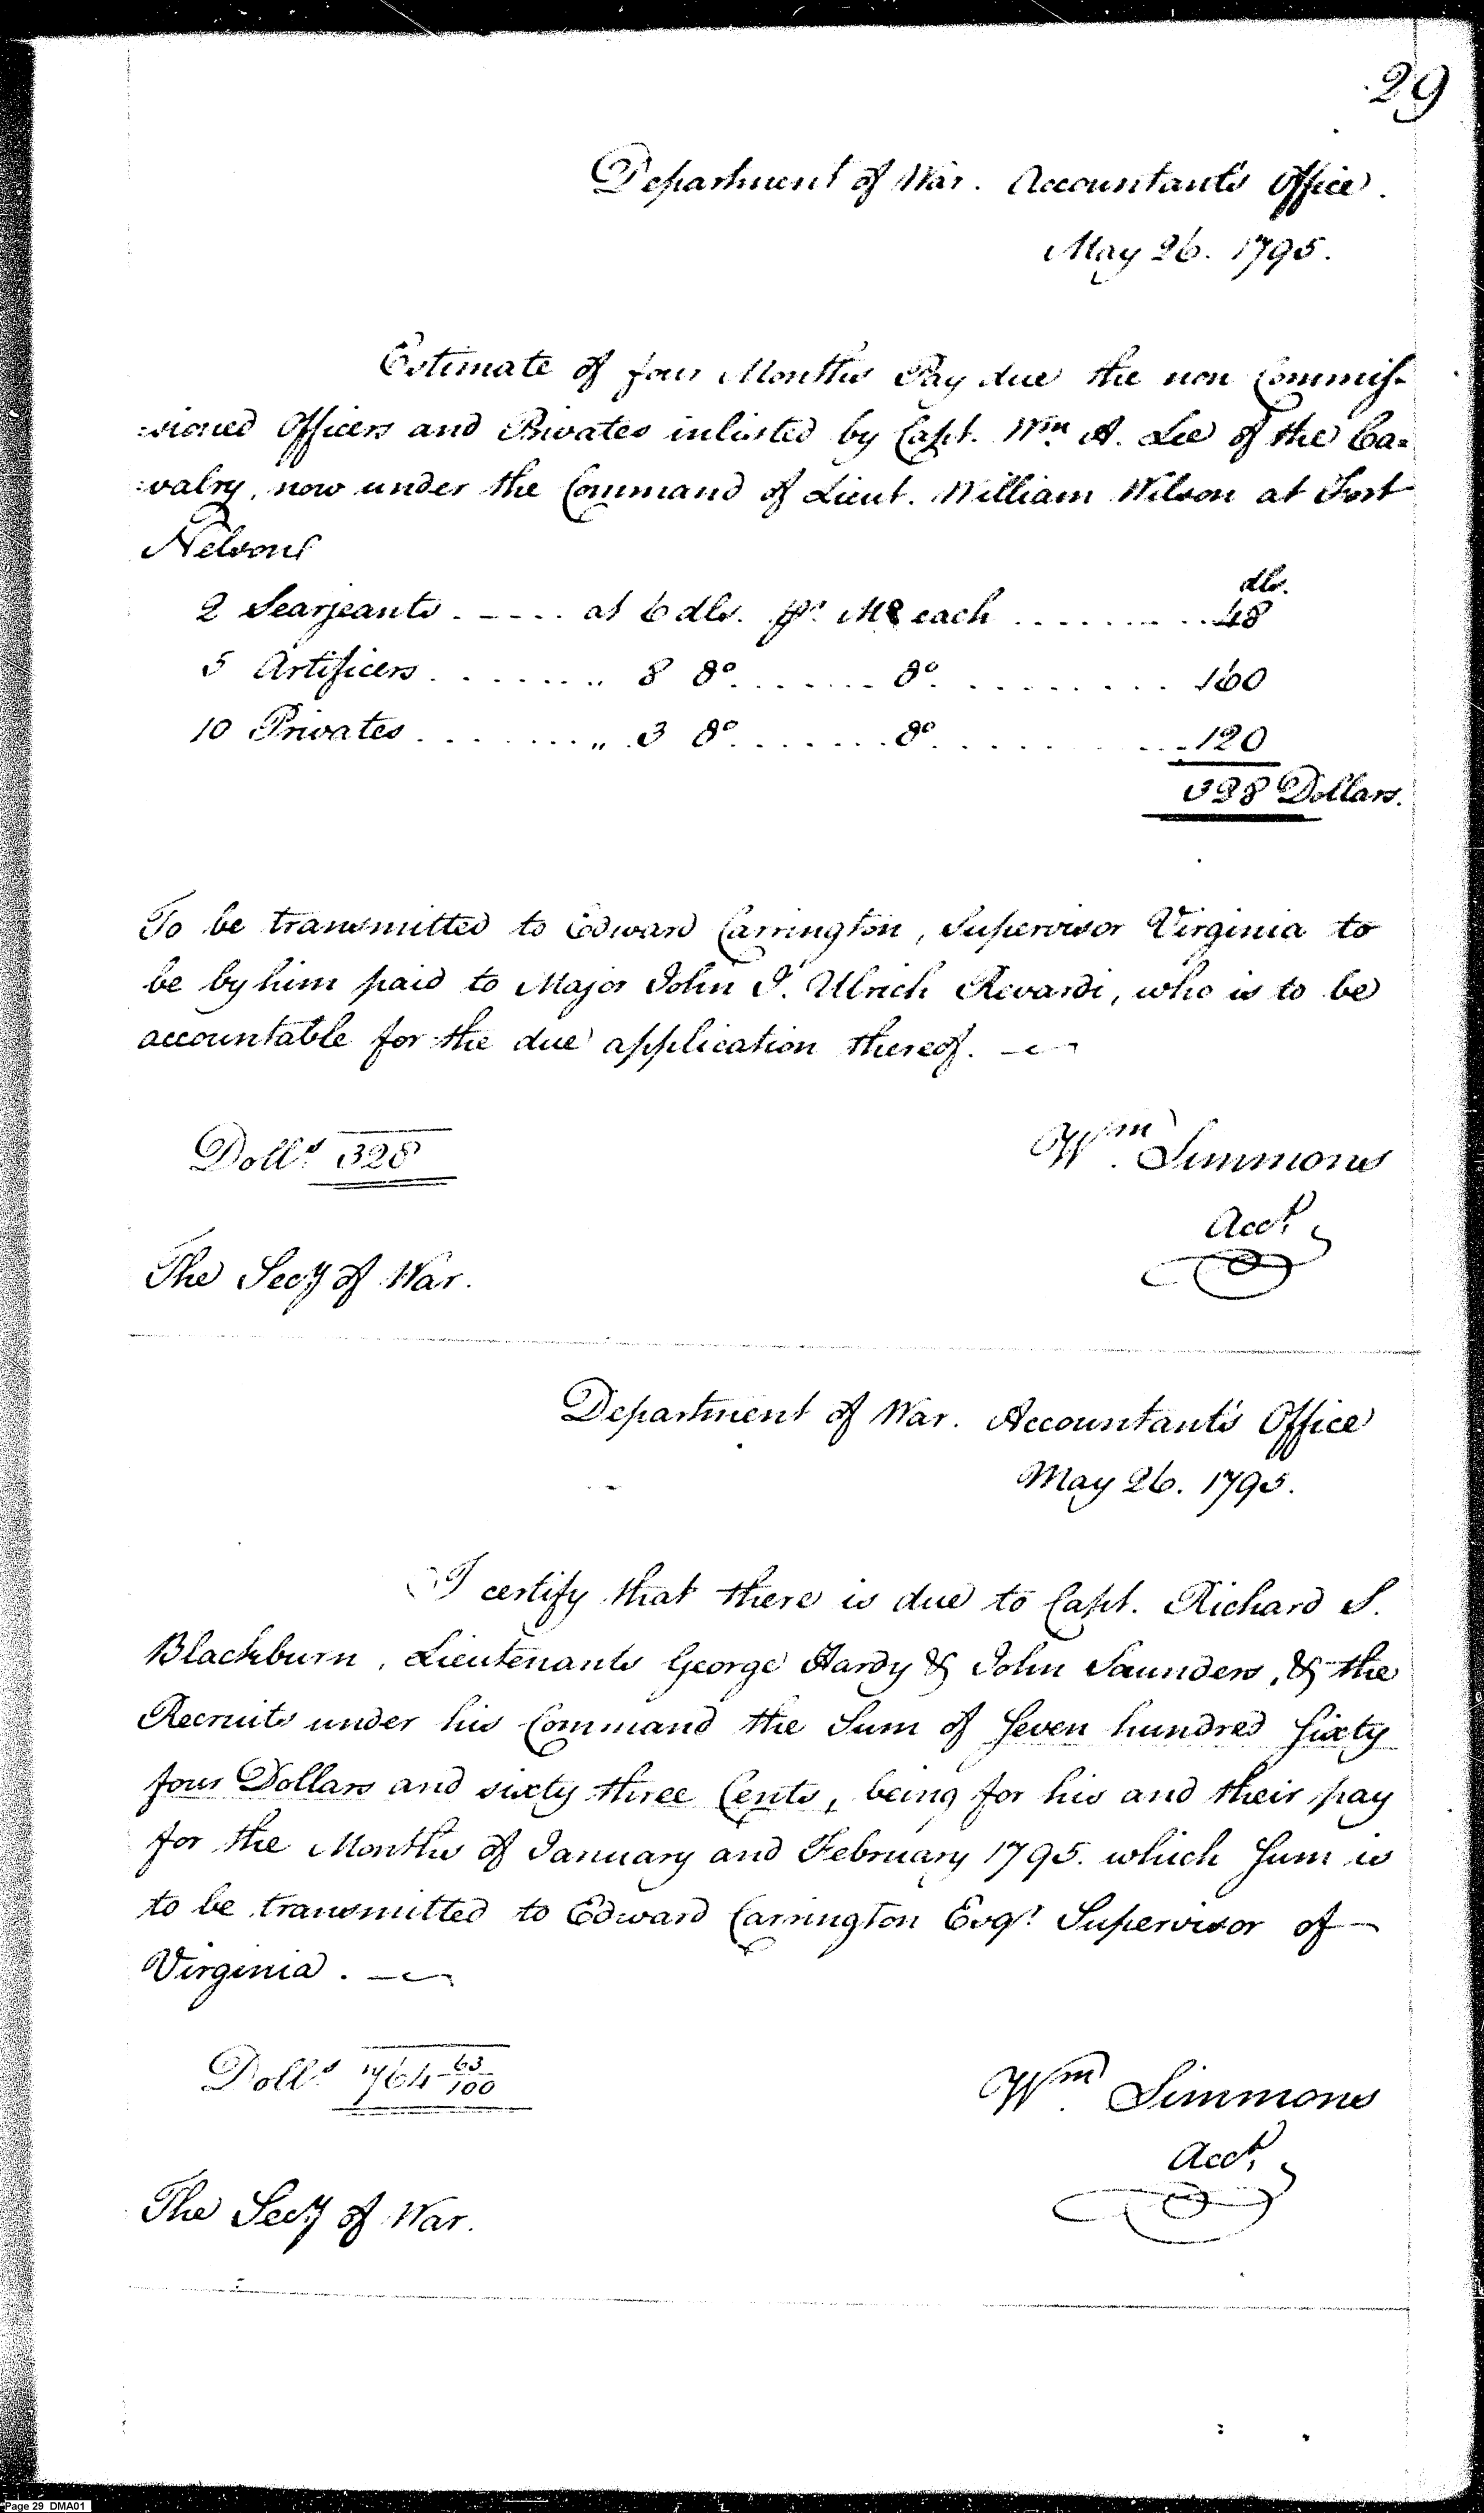 29
Department of War. Accountant's Office.
May 26. 1795.
Estimate of four Months Pay due the non Commis-
:sioned Officers and Privates inlisted by Capt. Wm A. Lee of the Ca=
:valry, now under the Command of Lieut. William Wilson at Fort
Nelson
dlrs.
2 Searjeants . - - - . at 6 dlrs. pr. Mo each . . . . . . . . . . 48
5 Artificers . . . . . . . „ 8 do . . . . . . . do . . . . . . . . . . 160
10 Privates . . . . . . . „ 3 do . . . . . . . do . . . . . . . . . . 120
328 Dollars.
To be transmitted to Edward Carrington, Supervisor Virginia to
be by him paid to Major John J. Ulrich Rivardi, who is to be
accountable for the due application thereof. —
Dolls. 328
Wm. Simmons
Acct.
The Secy of War.
Department of War. Accountant's Office
May 26. 1795.
I certify that there is due to Capt. Richard S.
Blackburn, Lieutenants George Hardy & John Saunders, & the
Recruits under his Command the Sum of Seven hundred Sixty
four Dollars and sixty three Cents, being for his and their pay
for the Months of January and February 1795. which Sum is
to be transmitted to Edward Carrington Esqr. Supervisor of —
Virginia. —
Dolls. 764 63/100
Wm. Simmons
Acct.
The Secy of War.
Page 29 DMA01